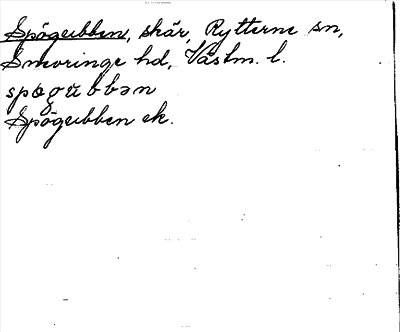 Spögubben, skär, Rytterne sn,
Snevringe hd, Västm. l.
spøgubbən
Spögubben ek.